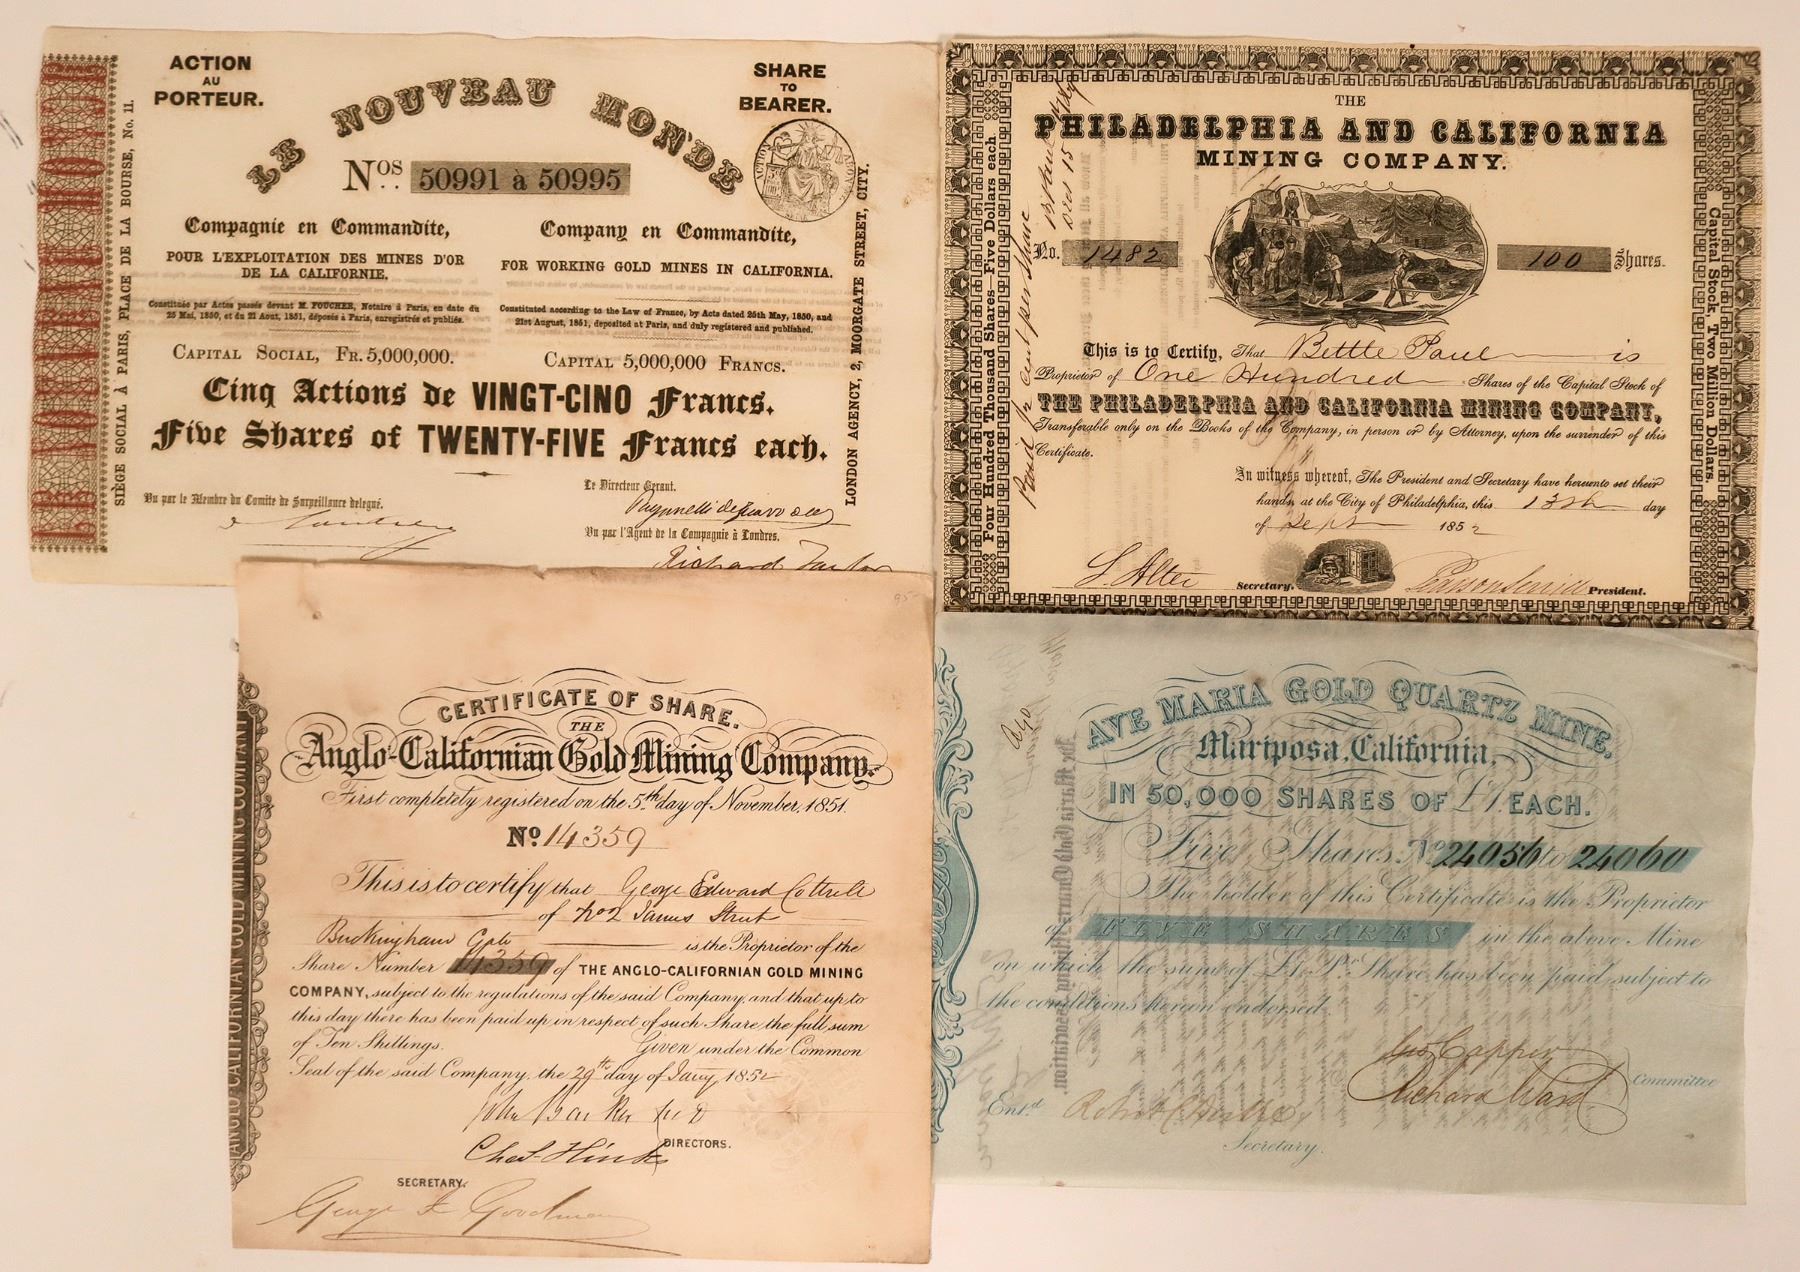 ACTION
AU
PORTEUR.
SHARE
TO
BEARER.
LE NOUVEAU MONDE
Nos. 50991 à 50995
Compagnie en Commandite,
POUR L'EXPLOITATION DES MINES D'OR
DE LA CALIFORNIE.
Constituée par Actes passés devant M. FOUCHER, Notaire à Paris, en date du
25 Mai, 1850, et du 21 Aout, 1851, déposés à Paris, enregistrés et publiés.
CAPITAL SOCIAL, FR. 5,000,000.
Company en Commandite,
FOR WORKING GOLD MINES IN CALIFORNIA.
Constituted according to the Law of France, by Acts dated 25th May, 1850, and
21st August, 1851, deposited at Paris, and duly registered and published.
CAPITAL 5,000,000 FRANCS.
Cinq Actions de VINGT-CINQ Francs.
Five Shares of TWENTY-FIVE Francs each.
Vu par le Membre du Comite de Surveillance delegué.
Le Directeur Gerant.
Vu par l'Agent de la Compagnie à Londres.
Richard Taylor
SIÈGE SOCIAL À PARIS, PLACE DE LA BOURSE, No. 11.
LONDON AGENCY, 2, MOORGATE STREET, CITY.
THE
PHILADELPHIA AND CALIFORNIA
MINING COMPANY.
No. 1482
100 Shares.
This is to Certify, That Bettle Paul is
Proprietor of One Hundred Shares of the Capital Stock of
THE PHILADELPHIA AND CALIFORNIA MINING COMPANY,
Transferable only on the Books of the Company, in person or by Attorney, upon the surrender of this
Certificate.
In witness whereof, The President and Secretary have hereunto set their
hands, at the City of Philadelphia, this 13th day
of Sept 1852
S Alter Secretary.
President.
Four Hundred Thousand Shares—Five Dollars each.
Capital Stock, Two Million Dollars.
Paid cent per share
CERTIFICATE OF SHARE.
THE
Anglo-Californian Gold Mining Company.
First completely registered on the 5th day of November, 1851.
No. 14359
This is to certify that George Edward Cottrell
of No 2 James Street
Buckingham Gate is the Proprietor of the
Share Number 14359 of THE ANGLO-CALIFORNIAN GOLD MINING
COMPANY, subject to the regulations of the said Company, and that up to
this day there has been paid up in respect of such Share the full sum
of Ten Shillings. Given under the Common
Seal of the said Company, the 29th day of Jany, 1852
DIRECTORS.
SECRETARY.
George F Goodman
ANGLO CALIFORNIAN GOLD MINING COMPANY
AVE MARIA GOLD QUARTZ MINE.
Mariposa, California,
IN 50,000 SHARES OF £1. EACH.
Five Shares, No. 24056 to 24060
The holder of this Certificate is the Proprietor
of FIVE SHARES in the above Mine
on which the sum of £1. Pr. Share has been paid subject to
the conditions hereon endorsed.
Richard Ward
Committee
Entd.
Secretary.